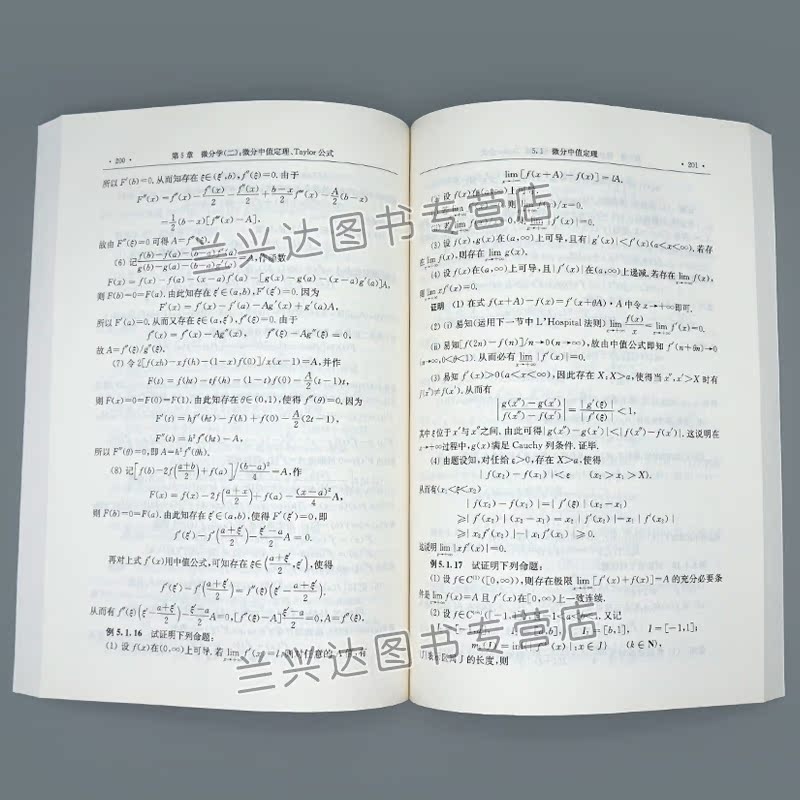 · 200 ·
第5章 微分学(二):微分中值定理、Taylor公式
所以 F′(b)=0. 从而知存在 ξ∈(ξ′,b), f″(ξ)=0. 由于
F″(x)=f″(x)-f″(x)/2-f″(x)/2+(b-x)/2 f‴(x)-A/2(b-x)
=1/2(b-x)[f‴(x)-A].
故由 F″(ξ)=0 可得 A=f‴(ξ).
(6) 记 =A, 作函数
F(x)=f(x)-f(a)-(x-a)f′(a)-[g(x)-g(a)-(x-a)g′(a)]A,
则 F(b)=0=F(a). 由此知存在 ξ′∈(a,b), F′(ξ′)=0. 因为
F′(x)=f′(x)-f′(a)-Ag′(x)+g′(a)A,
所以 F′(a)=0. 从而又存在 ξ∈(a,ξ′), F″(ξ)=0. 由于
F″(x)=f″(x)-Ag″(x), f″(ξ)-Ag″(ξ)=0,
故 A=f″(ξ)/g″(ξ).
(7) 令 2[f(xh)-xf(h)-(1-x)f(0)]/x(x-1)=A, 并作
F(t)=f(ht)-tf(h)-(1-t)f(0)-A/2(t-1)t,
则 F(x)=0=F(0)=F(1). 由此知存在 θ∈(0,1), 使得 f″(θ)=0. 因为
F′(t)=hf′(ht)-f(h)+f(0)-A/2(2t-1),
F″(t)=h²f″(ht)-A,
所以 F″(θ)=0, 即 A=h²f″(θh).
(8) 记 [f(b)-2f((a+b)/2)+f(a)]/((b-a)²/4)=A, 作
F(x)=f(x)-2f((a+x)/2)+f(a)-(x-a)²/4 A,
则 F(b)=0=F(a). 由此知存在 ξ′∈(a,b), 使得 F′(ξ′)=0, 即
f′(ξ′)-f′((a+ξ′)/2)-(ξ′-a)/2 A=0.
再对上式 f′(x) 用中值公式, 可知存在 ξ∈((a+ξ′)/2,ξ′), 使得
f′(ξ′)-f′((a+ξ′)/2)=f″(ξ)(ξ′-(a+ξ′)/2).
从而有 f″(ξ)(ξ′-(a+ξ′)/2)-(ξ′-a)/2 A=0, [f″(ξ)-A](ξ′-a)/2=0, A=f″(ξ).
例 5.1.16 试证明下列命题:
(1) 设 f(x) 在(0,∞)上可导. 若 lim f′(x)=l, 则对任意的 A 值, 有
5.1 微分中值定理
· 201 ·
lim[f(x+A)-f(x)]=lA.
(2) 设 f(x) 在 上可
(3) 设 f(x), g(x) 在(a,∞)上可导, 且有 |g′(x)|<f′(x)(a<x<∞). 若存
在 lim f(x), 则存在 lim g(x).
(4) 设 f(x) 在(a,∞)上可导, 且 f′(x) 在(a,∞)上递减. 若存在 lim f(x),
则 lim xf′(x)=0.
证明 (1) 在式 f(x+A)-f(x)=f′(x+θA)·A 中令 x→+∞ 即可.
(2) (i) 易知(运用下一节中 L'Hospital 法则) lim f(x)/x=lim f′(x)=0.
(ii) 易知[f(2n)-f(n)]/n→0(n→∞), 故由中值公式即知 f′(n+θn)→0
(n→∞,0<θ<1). 从而必有 lim|f′(x)|=0.
(3) 易知 f′(x)>0(a<x<∞), 因此存在 X, X>a, 使得当 x″,x′>X 时有
f(x″)≠f(x′). 从而有
|(g(x″)-g(x′))/(f(x″)-f(x′))|=|g′(ξ)/f′(ξ)|<1,
其中 ξ 位于 x′ 与 x″ 之间. 由此可得 |g(x″)-g(x′)|<|f(x″)-f(x′)|. 这说明在
x→+∞ 过程中, g(x) 满足 Cauchy 列条件. 证毕.
(4) 由题设知, 对任给 ε>0, 存在 X>a, 使得
|f(x₂)-f(x₁)|<ε (x₂>x₁>X).
从而有(x₁<ξ<x₂)
|f(x₂)-f(x₁)|=|f′(ξ)|(x₂-x₁)
≥|f′(x₂)|(x₂-x₁)=x₂|f′(x₂)|-x₁|f′(x₂)|
≥|x₂f′(x₂)|-|x₁f′(x₁)|≥0.
这说明 lim|xf′(x)|=0.
例 5.1.17 试证明下列命题:
(1) 设 f∈C⁽¹⁾([0,∞)), 则存在极限 lim[f′(x)+f(x)]=A 的充分必要条
件是 lim f(x)=A 且 f′(x) 在[0,∞)上一致连续.
(2) 设 f∈C , 又记
I₂=[b,1], I=[-1,1];
x∈J} (k∈N),
的长度, 则
兰兴达图书专营店
兰兴达图书专营店